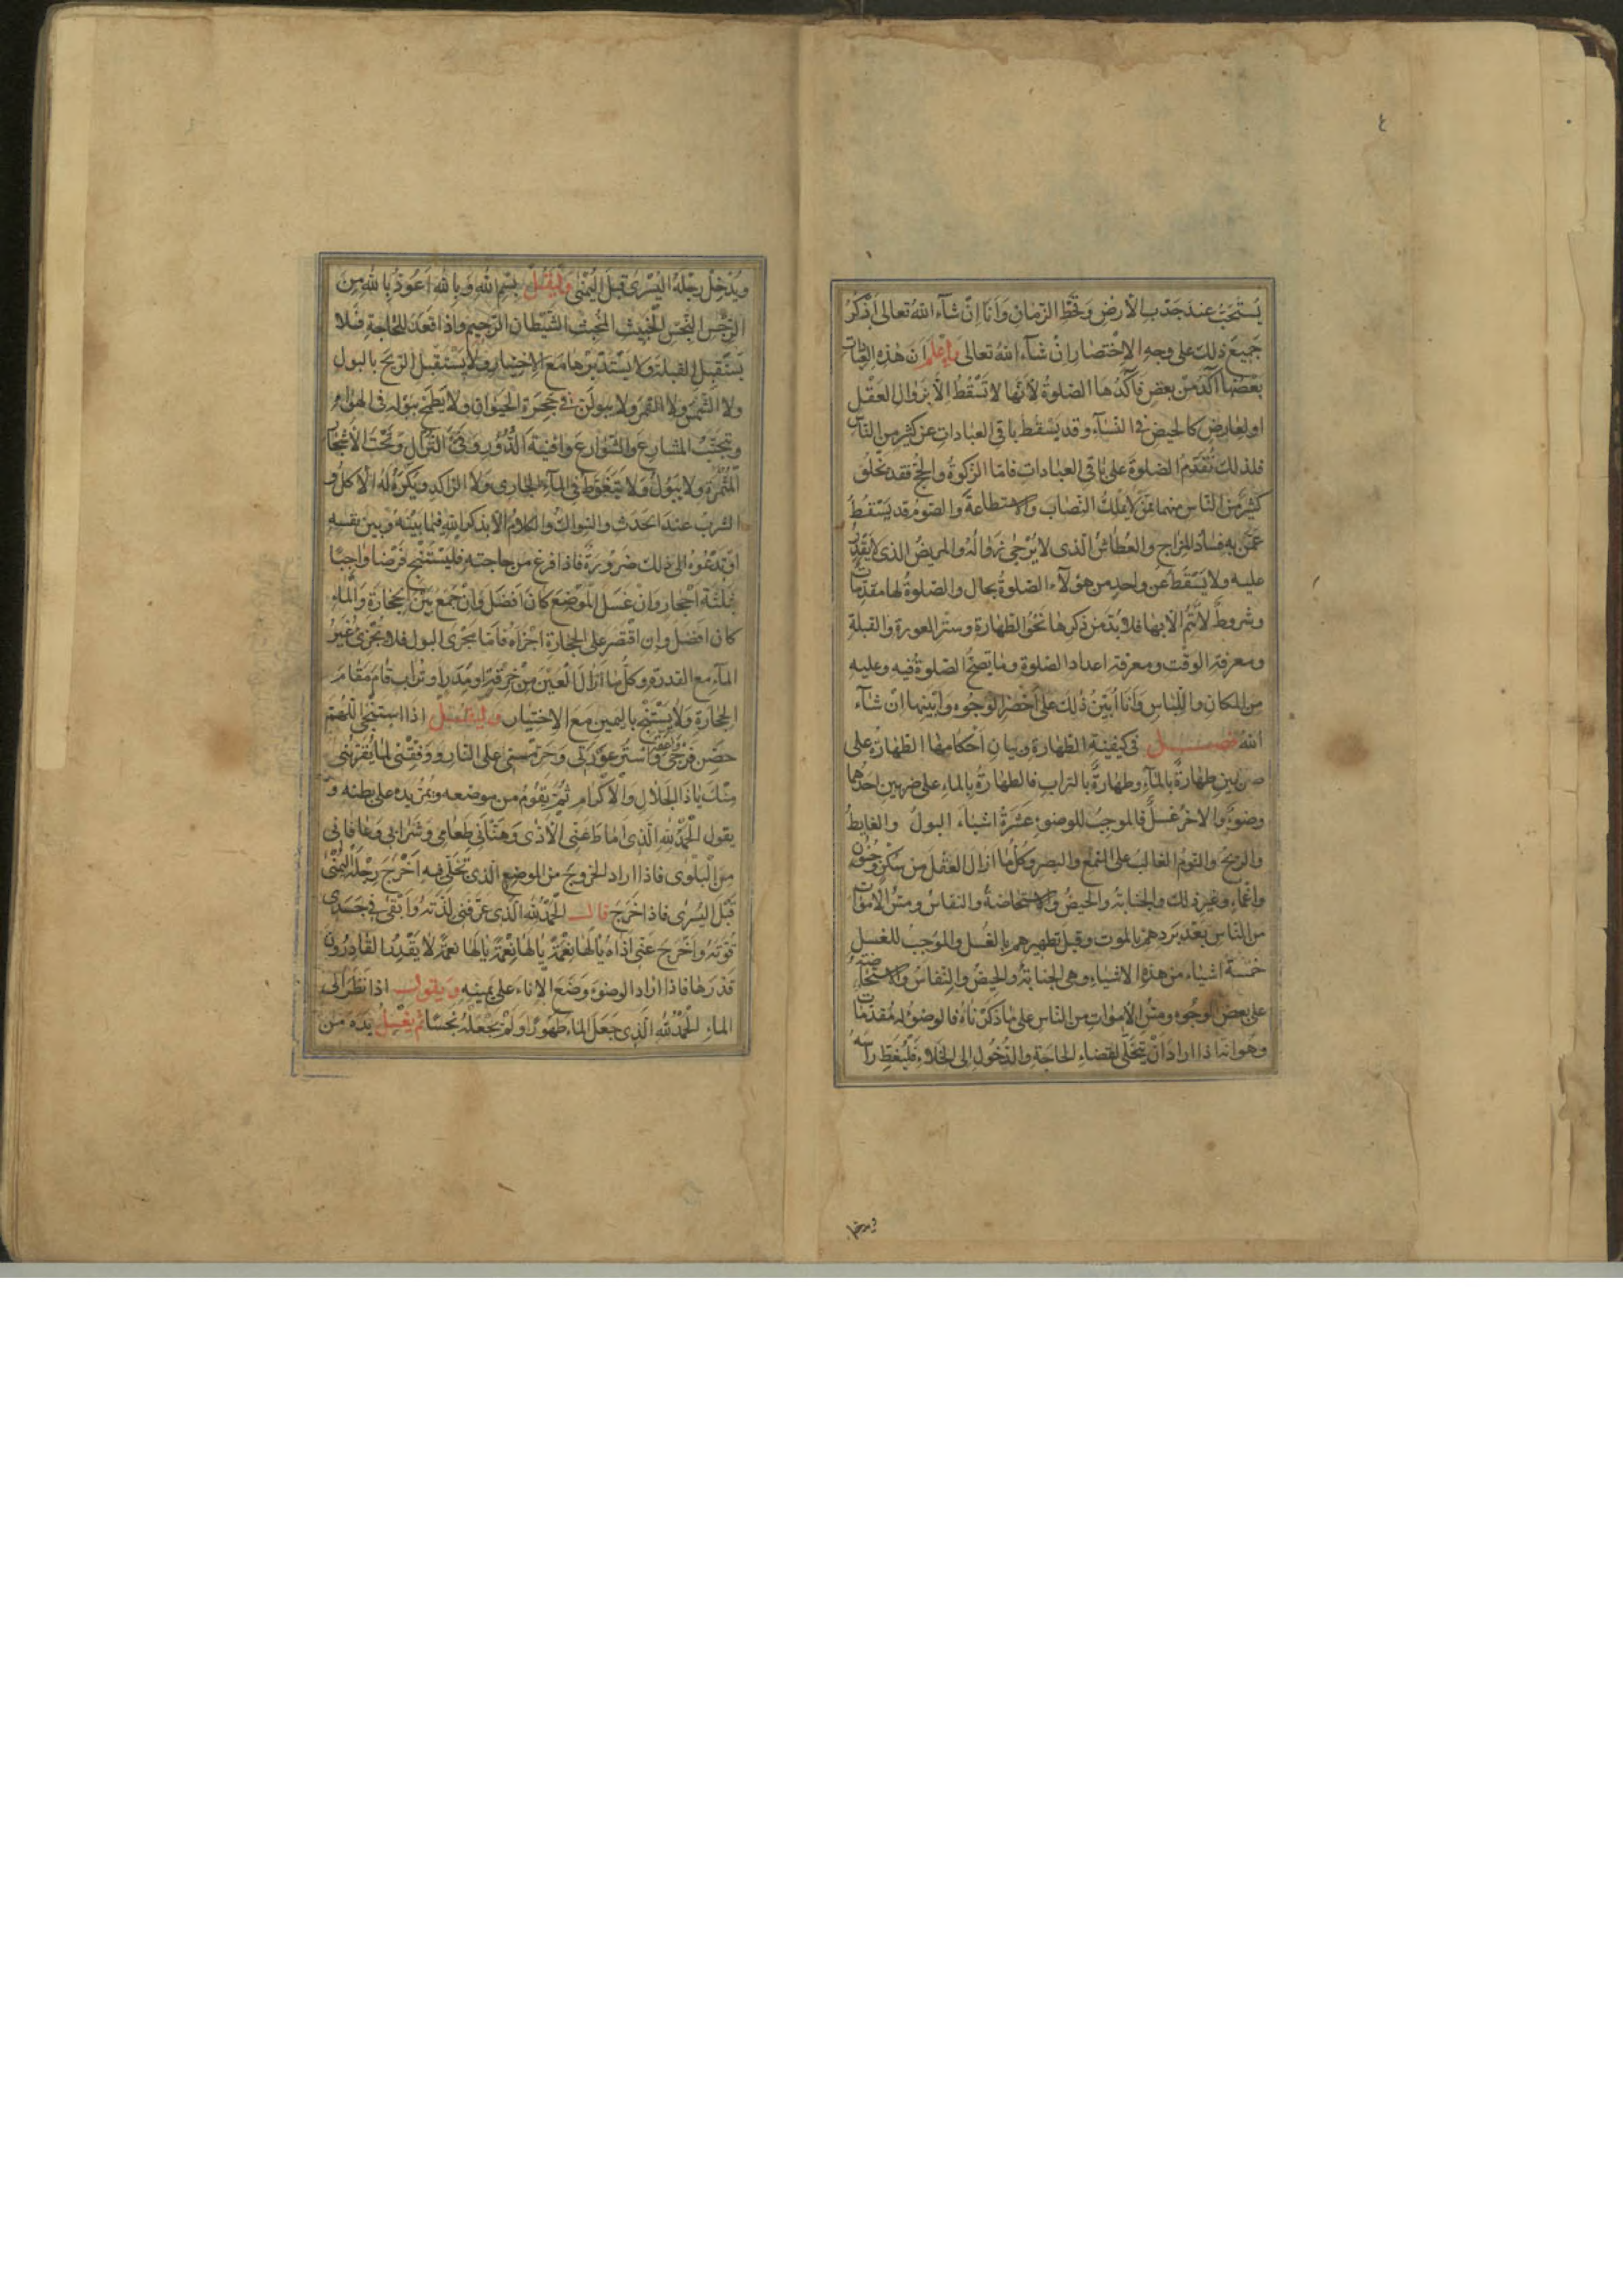 ٤
يُسْتَحَبُّ عند جَدْبِ الأرضِ وَقَحْطِ الزّمانِ وَأنَا اِنْ شآءَ اللهُ تعالى اَذْكُرُ
جَميعَ ذلك على وجهِ الاِخْتصارِ انْ شآءَ اللهُ تعالى وَاِعْلَم اَنَّ هٰذِهِ العِبادات
بَعْضُها آكَدُ مِنْ بعضٍ فَآكَدُها الصّلوةُ لاَنَّها لا تَسْقُطُ اِلاّ بِزَوالِ العَقْلِ
او لِعارِضٍ كالحيضِ في النسآءِ وقد يَسْقُطُ باقي العبادات عن كثيرٍ من النّاسِ
فلذلك تُقَدَّمُ الصلوةَ على باقِي العبادات فامّا الزّكوةُ والحجُّ فقد يَخْلُو
كثيرٌ من الناسِ منهما مِمَّنْ لا يَمْلِكُ النِّصابَ والاستطاعَةَ والصّومُ قد يَسْقُطُ
عَمَّنْ بِهِ فسادُ المِزاجِ والعُطاشُ الّذى لا يُرْجى زوالُهُ والمريضُ الذى لا يَقْدِرُ
عليه ولا يَسْقُطُ عن واحدٍ من هؤلاءِ الصلوةُ بحالٍ والصّلوةُ لها مقدّماتٌ
وشروطٌ لا تَتِمُّ الاّ بها فلا بُدَّ من ذكرِها نَحْوُ الطّهارةِ وسترِ العورةِ والقبلةِ
ومعرفةِ الوقتِ ومعرفةِ اعدادِ الصّلوةِ وما يَصحُّ الصّلوةُ فيهِ وعليهِ
مِن المكانِ واللِّباسِ وَأنا اُبَيِّنُ ذلكَ على اَخْصَرِ الوُجُوهِ وَاَبْيَنِها اِنْ شآءَ
اللهُ فصــــل في كيفيّةِ الطّهارةِ وبيانِ اَحْكامِها الطّهارةُ على
ضربينِ طهارةٌ بالمآءِ وطهارةٌ بالترابِ فالطهارةُ بالماءِ على ضربينِ احدُهما
وضوءٌ والاخرُ غسلٌ فالموجبُ للوضوءِ عَشَرَةُ اشياءَ البولُ والغايطُ
والريحُ والنومُ الغالبُ على السّمعِ والبصرِ وكُلُّ ما ازالَ العَقْلَ من سُكْرٍ وجُنُونٍ
واغماءٍ وغيرِ ذلك والجنابةُ والحيضُ والاستحاضةُ والنفاسُ ومسُّ الاَمْواتِ
من النّاسِ بَعْدَ بَرْدِهمْ بالموتِ وقبلَ تطهيرِهم بالغُسلِ والموجبُ للغسلِ
خمسةُ اشياءَ من هذهِ الاشياءِ وهى الجنابةُ والحيضُ والنّفاسُ والاستحاضةُ
على بعضِ الوجُوهِ ومسُّ الاَمْواتِ من النّاسِ على ما ذكرناهُ فالوضوءُ له مُقدّماتٌ
وهو انّهُ اذا ارادَ اَنْ يتخلّى لقضاءِ الحاجةِ والدُّخُولِ الى الخلاءِ فَلْيُغَطِّ رأسَهُ
ويدخل
ويُدْخِلْ رِجْلَهُ اليُسْرى قبلَ اليُمْنى وَلْيَقُلْ بِسْمِ اللهِ وَبِاللهِ اَعُوذُ بِاللهِ مِنَ
الرِّجْسِ النَّجِسِ الخَبيثِ المُخْبِثِ الشَّيْطانِ الرَّجيمِ واذا قَعَدَ للحاجةِ فلا
يَسْتَقْبِلِ القبلةَ ولا يَسْتَدْبِرْها مَعَ الاختيارِ ولا يَسْتَقْبِلِ الرّيحَ بالبولِ
ولا الشّمسَ ولا القَمَرَ ولا يبولَنَّ في جِحَرَةِ الحَيَوانِ ولا يُطَمِّحْ بِبَوْلِهِ في الهواءِ
ويَجْتَنِبُ المَشارِعَ والشّوارعَ وَاَفْنِيَةَ الدُّورِ وَفَيْءَ النُّزّالِ وَتَحْتَ الاَشْجارِ
المُثْمِرَةِ ولا يَبُولُ وَلا يَتَغَوَّطُ في المآءِ الجاري ولا الرّاكدِ ويُكْرَهُ لَهُ الاَكلُ و
الشربُ عندَ الحَدَثِ والسِّواكُ والكلامُ الاّ بذكرِ اللهِ فيما بينَهُ وبينَ نفسِهِ
اَوْ تَدْعُوهُ الى ذلك ضَرُورَةٌ فاذا فَرَغَ من حاجتهِ فليَسْتَنْجِ فَرْضًا واجِبًا
بثَلثَةِ اَحْجارٍ وَانْ غَسَلَ المَوْضِعَ كانَ اَفْضَلَ وَانْ جَمَعَ بَيْنَ الحِجارَةِ وَالمآءِ
كان افضلَ وان اقْتَصَرَ على الحجارةِ اجْزَاَهُ فامّا مَجْرَى البولِ فلا يُجْزِئُ غَيْرُ
المآءِ مع القدرةِ وكلُّ ما اَزالَ العَيْنَ مِنْ خِرقَةٍ او مَدَرٍ او ترابٍ قامَ مَقامَ
الحجارةِ وَلا يَسْتَنْجِ باليمينِ مَعَ الاِختيارِ وليَقُــل اذا اسْتَنْجى اللّهُمَّ
حَصِّنْ فَرْجي وَاَعِفَّهُ وَاسْتُرْ عَوْرَتي وَحَرِّمْني على النّارِ وَوَفِّقْني لما يُقَرِّبُني
مِنْكَ ياذَا الجَلالِ والاِكْرامِ ثُمَّ يَقُومُ من موضعه ويُمِرُّ يدَه على بَطنِه و
يقول الحَمْدُ للهِ الَّذي اَماطَ عَنّي الاَذى وَهَنَّأَني طَعامي وَشَرابي وَعافاني
مِنَ البَلْوى فاذا ارادَ الخروجَ من الموضعِ الّذى تَخَلّى فيهِ اَخْرَجَ رِجْلَهُ اليُمْنى
قَبْلَ اليُسْرى فاذا خَرَجَ قالــ الحَمْدُ للهِ الّذي عَرَّفَني لَذَّتَهُ وَاَبْقى في جَسَدي
قُوَّتَهُ واَخْرَجَ عَنّي اَذاهُ يا لَها نِعْمَةً يا لَها نِعْمَةً يا لَها نِعْمَةً لا يَقْدِرُ القادِرُونَ
قَدْرَها فاذا ارادَ الوضوءَ وَضَعَ الاِناءَ على يمينِهِ ويقولــ اذا نَظَرَ الى
الماءِ الحَمْدُ للهِ الَّذي جَعَلَ الماءَ طَهُورًا وَلَمْ يَجْعَلْهُ نَجِسًا ثُمَّ يَغْسِلُ يَدَهُ مِنَ